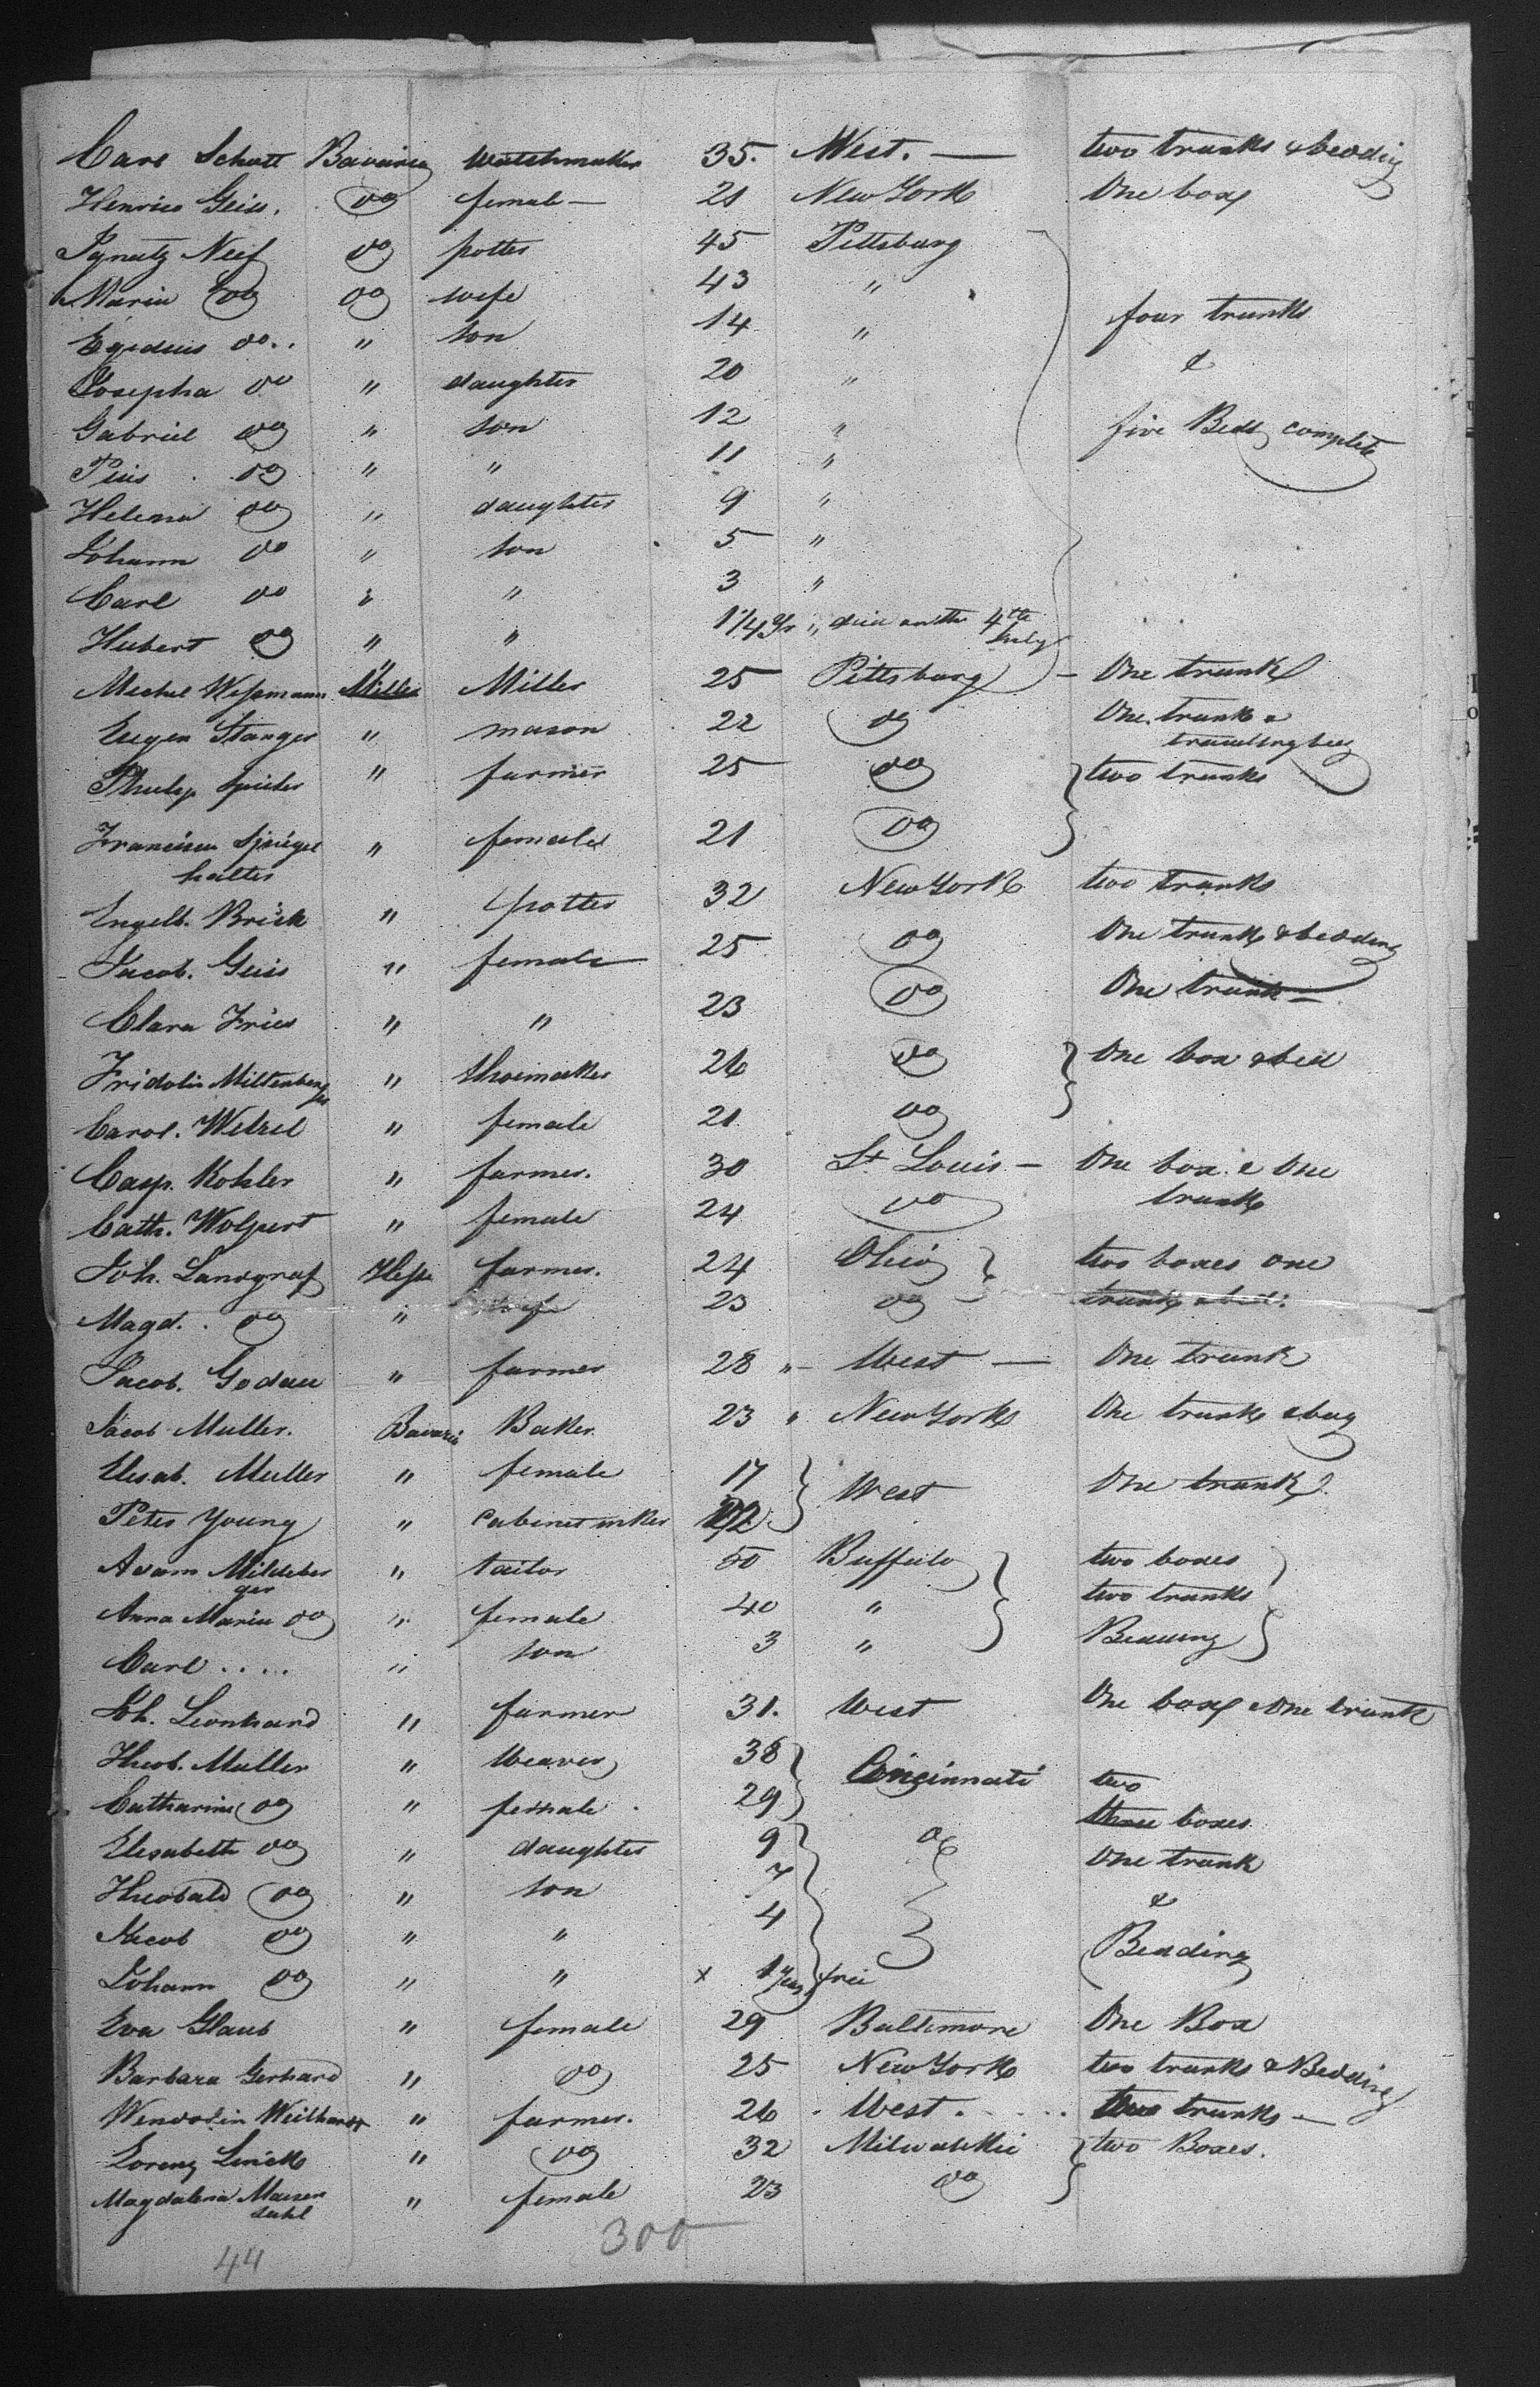 Carl Schott Bavaria watchmaker 35. West. — two trunks & bedding
Henrica Geiss. do female — 21 New York One box
Ignatz Neef do potter 45 Pittsburg
Maria do do wife 43 "
Egedius do.. " son 14 " four trunks
Josepha do " daughter 20 " &
Gabriel do " son 12 " five Beds complete
Pius do " " 11 "
Helena do " daughter 9 "
Johann do " son 5 "
Carl do " " 3 "
Hubert do " " 1 1/4 yr " died on the 4th
July
Michel Weßmann " Miller 25 Pittsburg — One trunk
Eugen Stanger " mason 22 do One trunk &
travelingbag
Philip " farmer 25 do two trunks
Francisca Spiegel " female 21 do
halter
Engelb. Brick " potter 32 New York two trunks
Jacob. Geiss " female 25 do One trunk & bedding
Clara Fries " " 23 do One trunk —
Fridolin Miltenberger " shoemaker 26 do One box & bed
Carol. Wetzel " female 21 do
Casp. Kohler " farmer. 30 St Louis — One box & One
Cath. Wolpert " female 24 do trunk
Joh. Landgraf Hesse farmer. 24 Ohio two boxes one
Magd. do " wife 23 do trunk & bed.
Jacob. Godau " farmer 28 " — West — One trunk
Jacob Muller. Bavaria Baker 23 " New York One trunk & bag
Elisab. Muller " female 17 West One trunk
Peter Young " Cabinetmker 22
Adam Mildeber " tailor 50 Buffalo two boxes
ger
Anna Maria do " female 40 " two trunks
Carl .... " son 3 " Bedding
Joh. Leonhard " farmer 31. West One box & One trunk
Theob. Muller " Weaver 38 Cincinnati two
Catharine do " female 29 three boxes
Elisabeth do " daughter 9 do One trunk
Theobald do " son 7 &
Jacob do " " 4 Bedding
Johann do " " x 1 year free
Eva Glaub " female 29 Baltimore One Box
Barbara Gerhard " do 25 New York two trunks & Bedding
Wendolin Weilhardt " farmer. 26 . West . . . . two trunks —
Lorenz Linick " do 32 Milwalkie two Boxes.
Magdalena " female 23 do
44 300